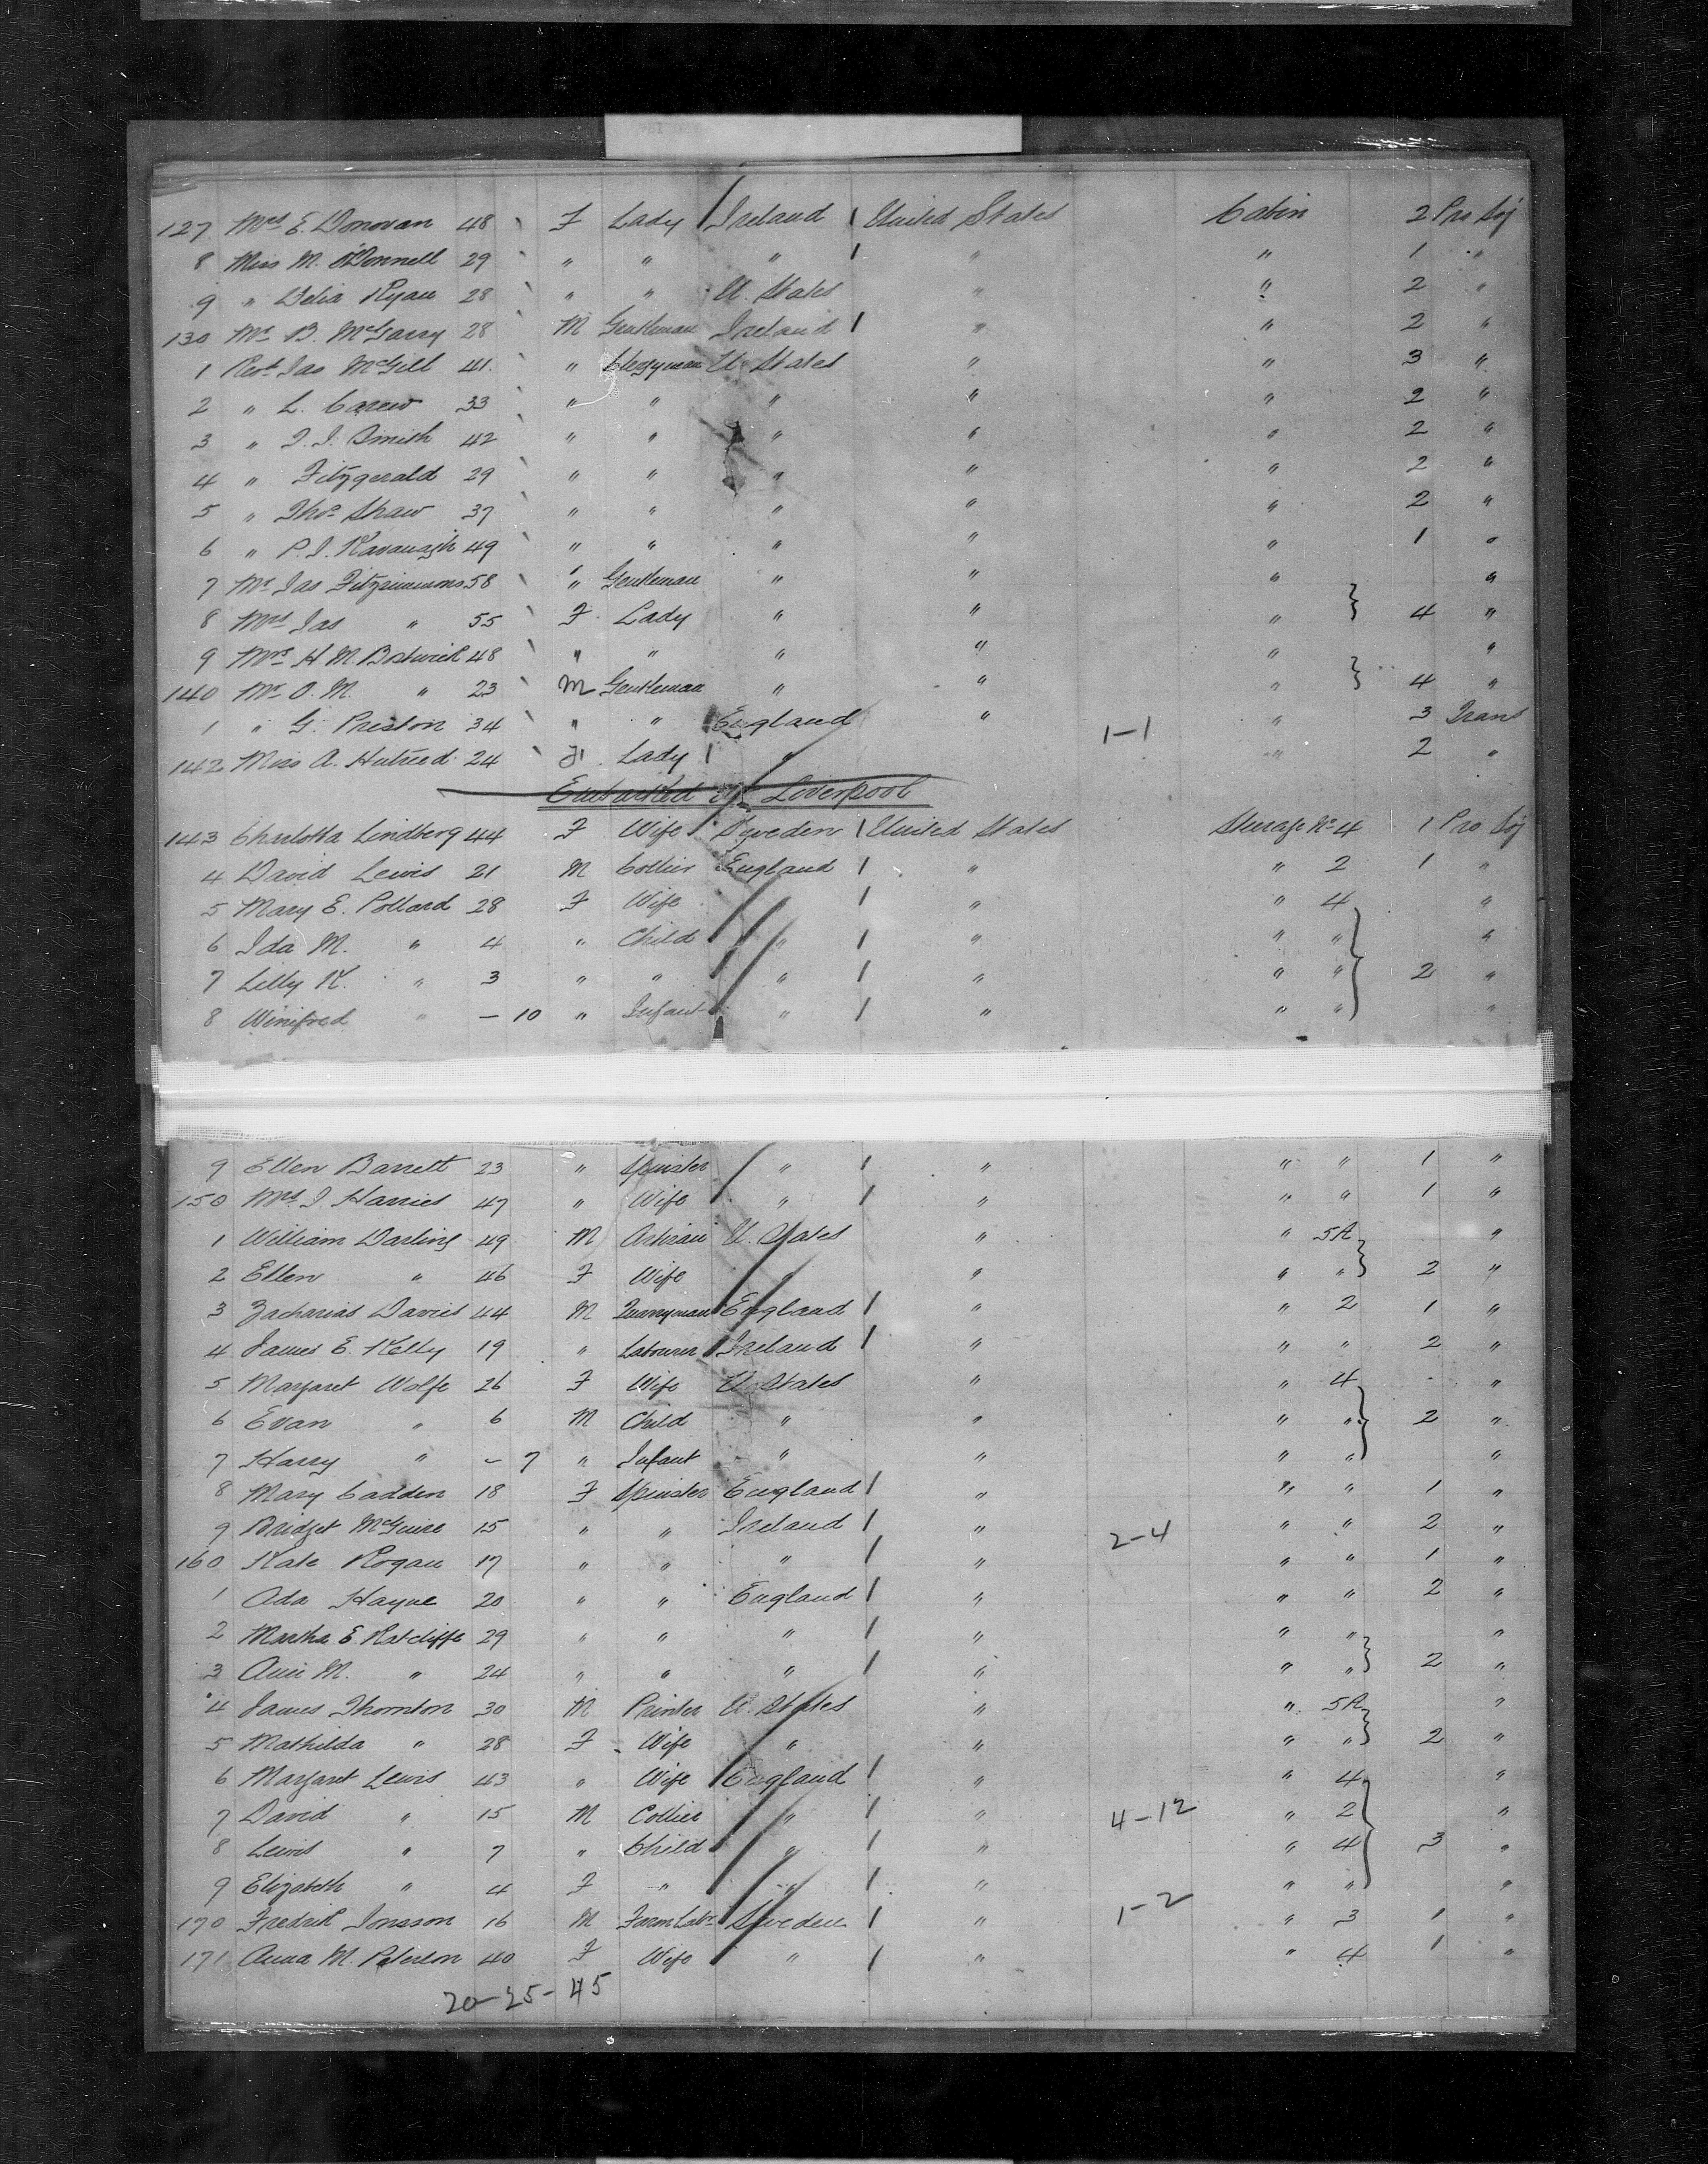 127 Mrs E. Donovan 48 F Lady Ireland United States Cabin 2 Pro Soj
8 Miss M. O'Donnell 29 " " " " " 1 "
9 " Delia Ryan 28 " " U. States " " 2 "
130 Mr B. McGarry 28 M Gentleman Ireland " " 2 "
1 Revd Jas McGill 41 " Clergyman U States " " 3 "
2 " L. Carew 33 " " " " " 2 "
3 " T. J. Smith 42 " " " " " 2 "
4 " Fitzgerald 29 " " " " " 2 "
5 " Thos Shaw 37 " " " " " 2 "
6 " P. J. Kavanagh 49 " " " " " 1 "
7 Mr Jas Fitzsimmons 58 " Gentleman " " " "
8 Mrs Jas " 55 F Lady " " " 4 "
9 Mrs H M. Bostwick 48 " " " " " "
140 Mr O. M. " 23 M Gentleman " " " 4 "
1 " G. Preston 34 " " England " 1-1 " 3 Trans
142 Miss A. 24 F Lady " " 2 "
Embarked at Liverpool
143 Charlotta Lindberg 44 F Wife Sweden United States Steerage No 4 1 Pro Soj
4 David Lewis 21 M Collier England " " 2 1 "
5 Mary E. Pollard 28 F Wife " " 4 "
6 Ida M. " 4 " Child " " " " "
7 Lilly K. " 3 " " " " " " 2 "
8 Winifred " – 10 " Infant " " " " "
9 Ellen Barrett 23 " Spinster " " " " 1 "
150 Mrs J. Harries 47 " Wife " " " " 1 "
1 William Darling 49 M Artisan U. States " " 5A "
2 Ellen " 46 F Wife " " " " 2 "
3 Zacharias Davies 44 M Quarryman England " " 2 1 "
4 James E. Kelly 19 " Labourer Ireland " " " 2 "
5 Margaret Wolfe 26 F Wife U. States " " 4 "
6 Evan " 6 M Child " " " " 2 "
7 Harry " – 7 " Infant " " " " "
8 Mary Cadden 18 F Spinster England " " " 1 "
9 Bridget McGuire 15 " " Ireland " 2-4 " " 2 "
160 Kate Rogan 17 " " " " " " 1 "
1 Ada Hayne 20 " " England " " " 2 "
2 Martha E. Ratcliffe 29 " " " " " " "
3 M. " 24 " " " " " " 2 "
4 James Thornton 30 M Printer U. States " " 5A "
5 Mathilda " 28 F Wife " " " " 2 "
6 Margaret Lewis 43 " Wife England " " 4 "
7 David " 15 M Collier " " 4-12 " 2 "
8 Lewis " 7 " Child " " " 4 3 "
9 Elizabeth " 4 F " " " " " "
170 Fredrik Jonsson 16 M Farm Labr Sweden " 1-2 " 3 1 "
171 Anna M. Peterson 40 F Wife " " " 4 1 "
20-25-45